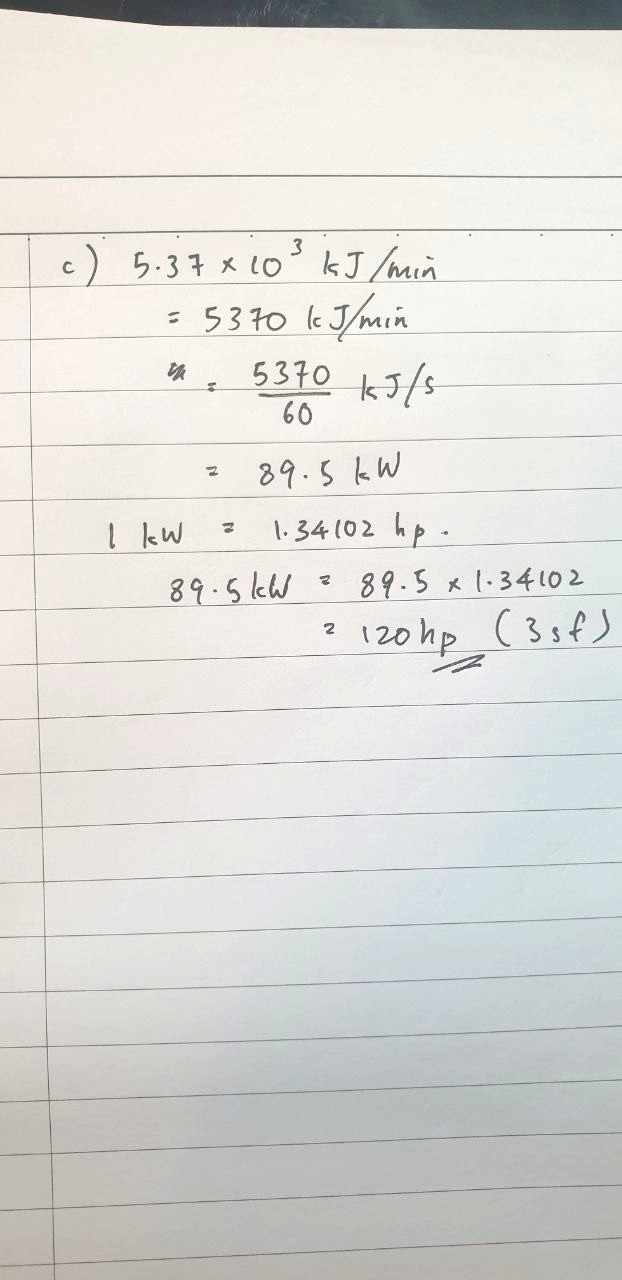 c) 5.37 × 10³ kJ/min
= 5370 kJ/min
= 5370/60 kJ/s
= 89.5 kW
1 kW = 1.34102 hp.
89.5 kW = 89.5 × 1.34102
= 120 hp (3sf)